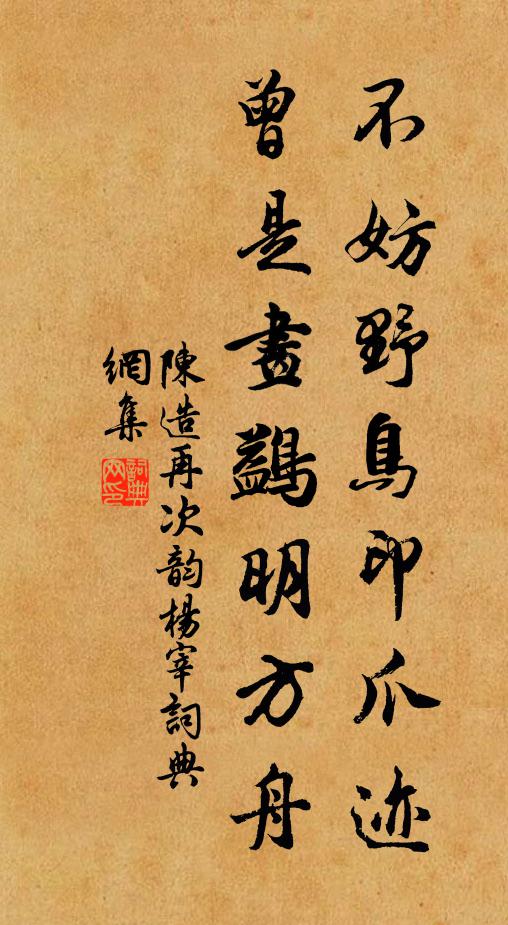 不妨野鳥印爪迹
曾是畫鷁明方舟
陳造再次韵楊宰詞典
網集
詞典
网印